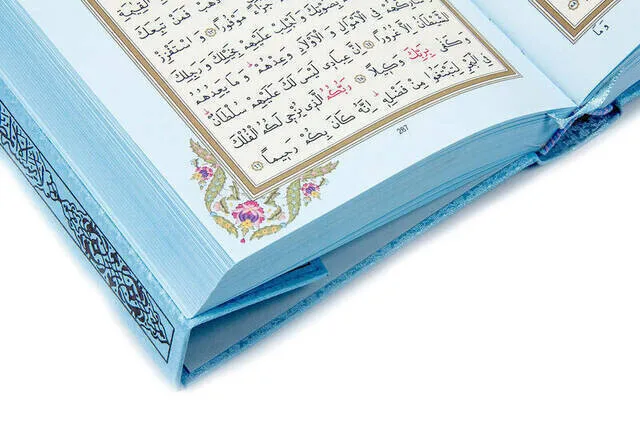 اذْهَبْ فَمَنْ تَبِعَكَ
مَوْفُورًا ﴿٦٣﴾ وَاسْتَفْزِزْ
بِصَوْتِكَ وَاَجْلِبْ عَلَيْهِمْ بِخَيْلِكَ وَرَجِلِكَ
فِي الْاَمْوَالِ وَالْاَوْلَادِ وَعِدْهُمْ وَمَا يَعِدُهُمُ
الشَّيْطَانُ اِلَّا غُرُورًا ﴿٦٤﴾ اِنَّ عِبَادِي لَيْسَ لَكَ عَلَيْهِمْ سُلْطَانٌ
وَكَفٰى بِرَبِّكَ وَكِيلًا ﴿٦٥﴾ رَبُّكُمُ الَّذِي يُزْجِي لَكُمُ الْفُلْكَ
فِي الْبَحْرِ لِتَبْتَغُوا مِنْ فَضْلِهِ اِنَّهُ كَانَ بِكُمْ رَحِيمًا ﴿٦٦﴾
287
وَمَا